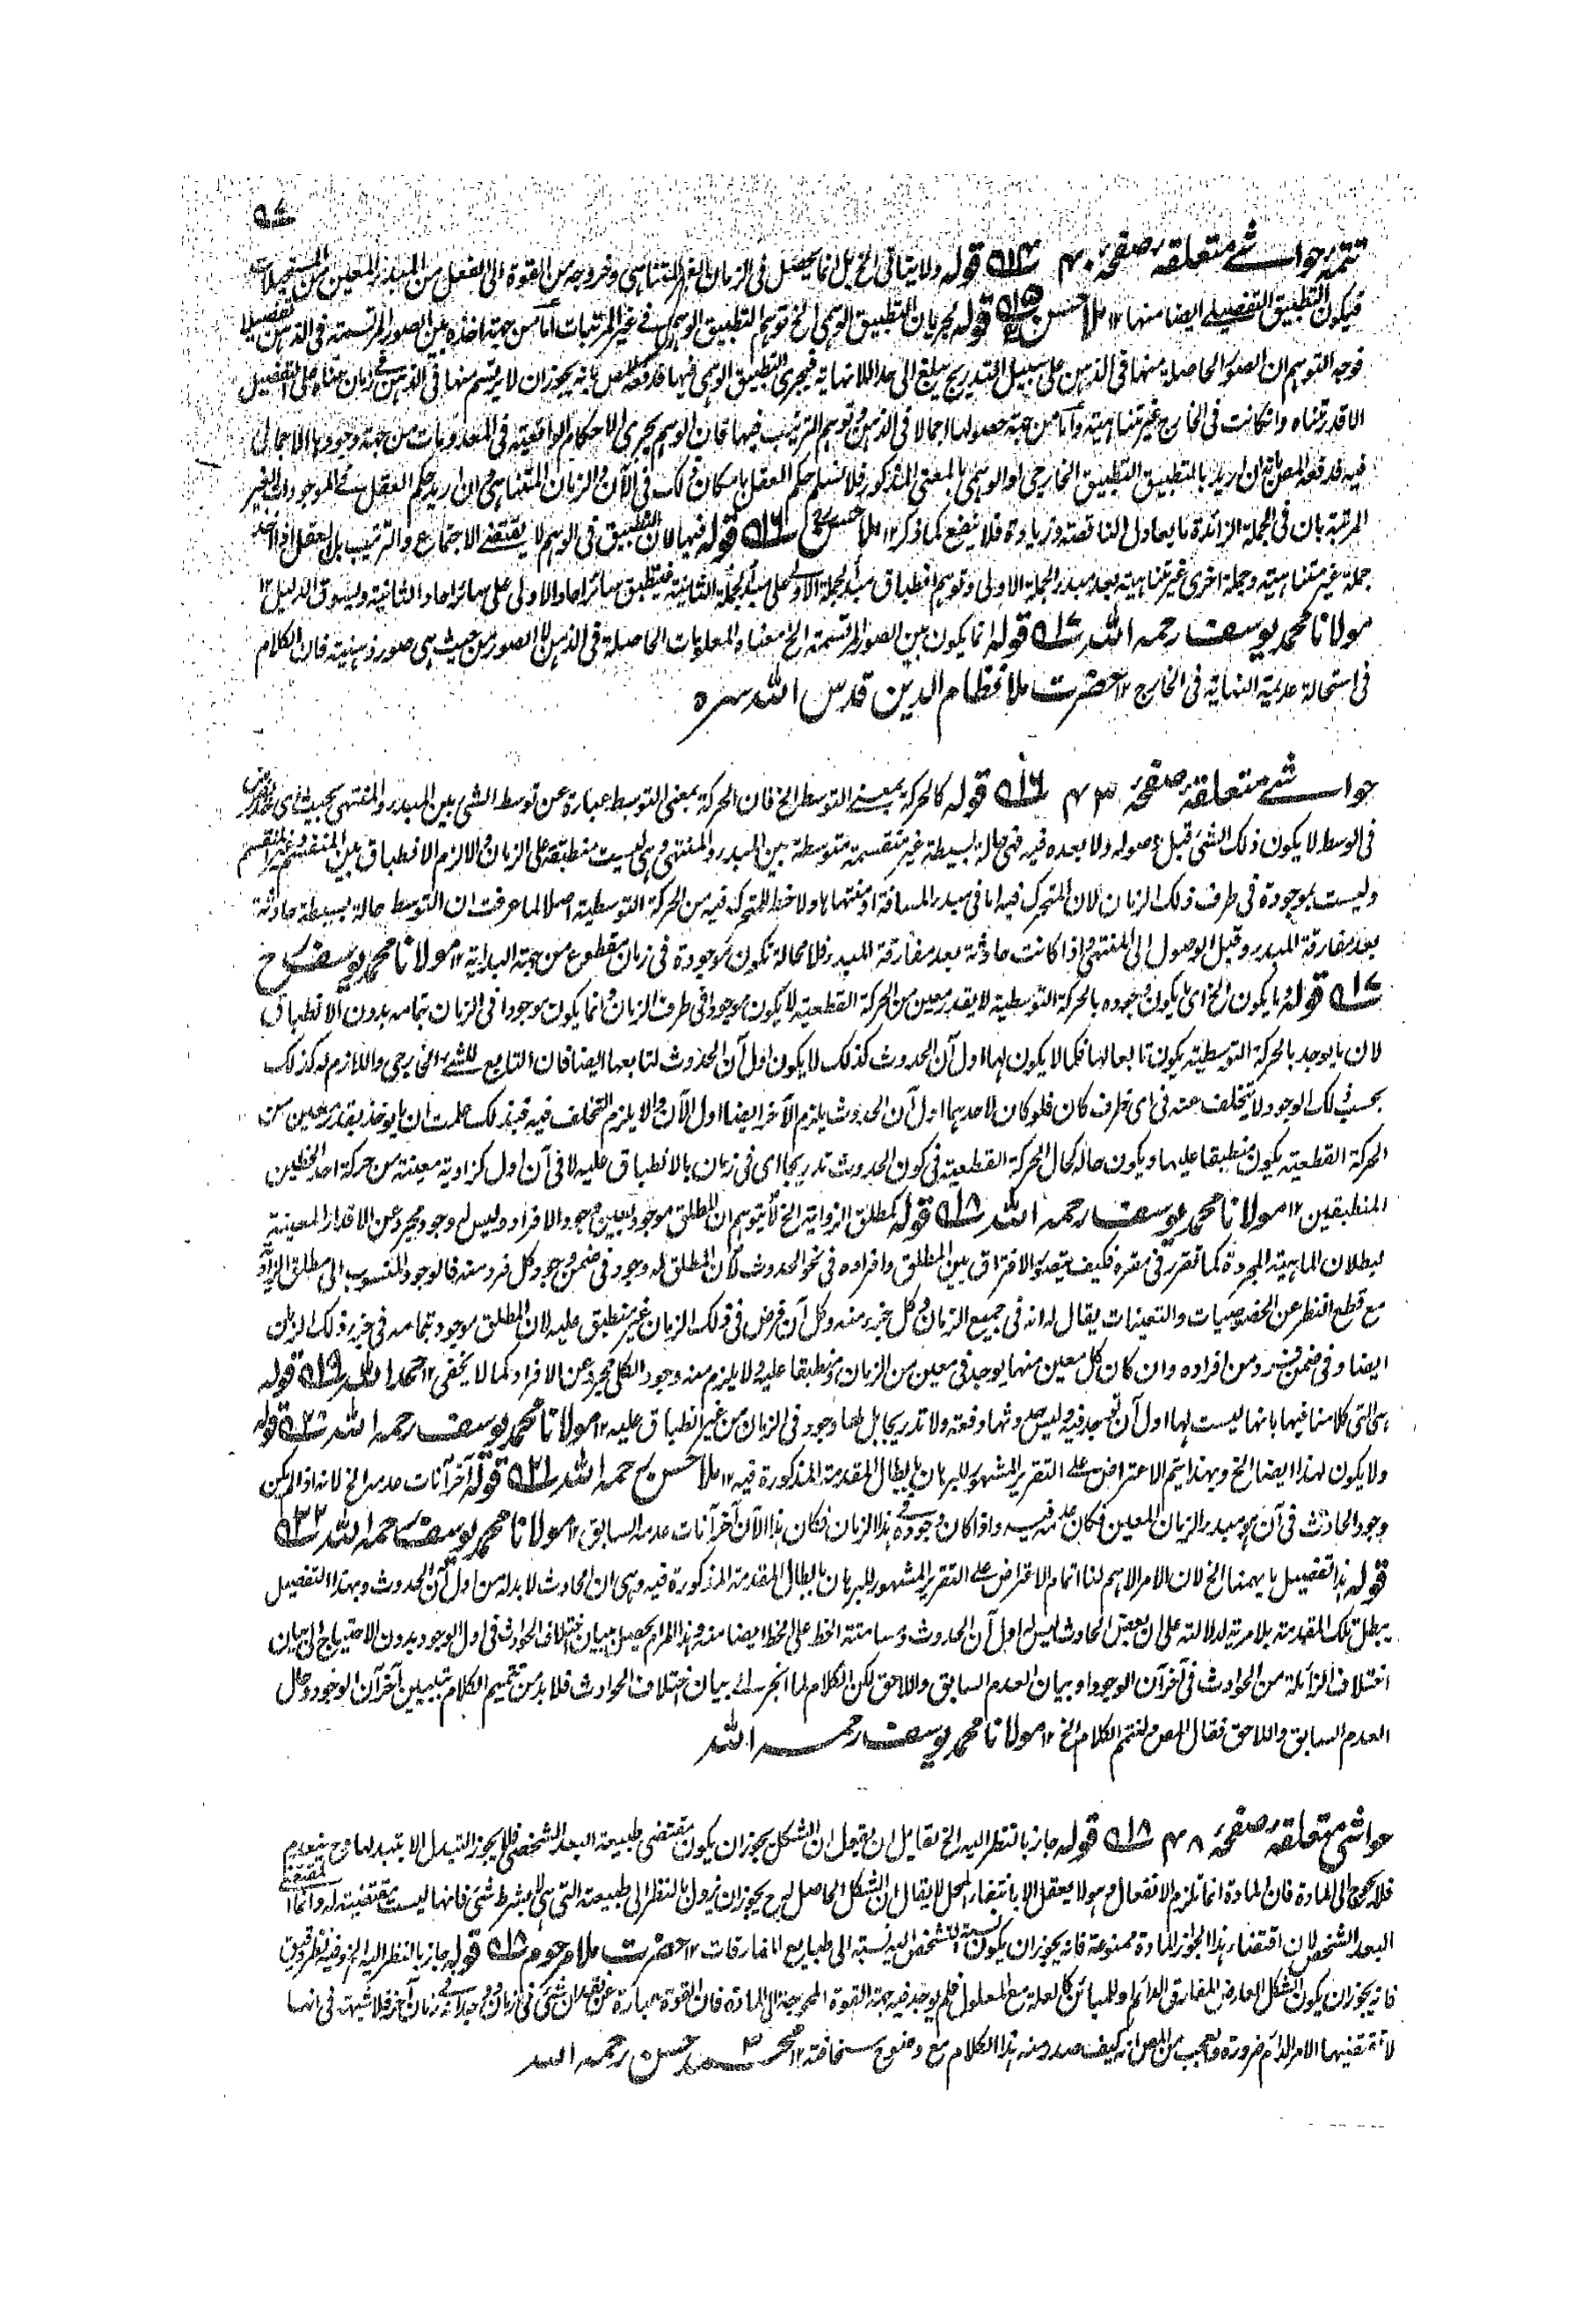 تتمہ حواشے متعلقہ صفحہ ۴۰ ؁۱۴ قوله ولا يتاتى الخ بل انما يحصل فى الزمان الغير المتناهى وخروجه من القوة الى الفعل من المبدء المعين من
فيكون التطبيق التفصيلے ايضا منها ۱۲ ملا حسن ؁۱۵ قوله لجريان التطبيق الوهمى الخ توهم التطبيق الوهمى فے غير المرتبات اما من جهة اخذه بين الصور المرتسمة فى الذهن تفصيلا
فوجه التوهم ان الصور الحاصلة منها فى الذهن على سبيل التدريج يبلغ الى حد اللانهاية فيجرى التطبيق الوهمى فيها فدفعه المص بانه يجوز ان لا يرتسم منها فى الذهن فى زمان متناه على التفصيل
الا قدر متناه وان كانت فى الخارج غير متناهية واما من جهة حصولها اجمالا فى الذهن وتوهم الترتيب فيها فان الوهم يجرى الاحكام الواقعية فى المعدومات من جهة وجودها الاجمالى
فيه فدفعه المص بانه ان اريد بالتطبيق التطبيق الخارجى او الوهمى بالمعنى المذكور فلا نسلم حكم العقل بامكان ذلك فى الآن والزمان المتناهى وان اريد حكم العقل فے الموجودات الغير
المرتبة بان فى الجملة الزائدة ما يعادل الناقصة وزيادة فلا ينفع كما ذكر ۱۲ ملا حسن رح ؁۱۶ قوله فيها لان التطبيق فى الوهم لا يقتضے الاجتماع والترتيب بل العقل اذا اخذ
جملة غير متناهية وجملة اخرى غير متناهية بعد مبدء الجملة الاولى وتوهم انطباق مبدء الجملة الاولى على مبدء الجملة الثانية فينطبق سائر احاد الاولى على سائر احاد الثانية ويسوق الدليل ۱۲
مولانا محمد يوسف رحمه الله ؁۱۷ قوله انما يكون بين الصور المرتسمة الخ معناه المعلومات الحاصلة فى الذهن لا الصور من حيث هى صور ذهنية فان الكلام
فى استحالة عديمة النهاية فى الخارج ۱۲ حضرت ملا نظام الدين قدس الله سره
حواشے متعلقہ صفحہ ۴۳ ؁۱۶ قوله كالحركة بمعنے التوسط الخ فان الحركة بمعنى التوسط عبارة عن توسط الشئ بين المبدء والمنتهى بحيث اى حد فرض
فى الوسط لا يكون ذلك الشئ قبل وصوله ولا بعده فيه فهى حالة بسيطة غير منقسمة متوسطة بين المبدء والمنتهى وهى ليست منطبقة على الزمان والا لزم الانطباق بين المنقسم وغير المنقسم
وليست بموجودة فى طرف ذلك الزمان لان المتحرك فيه اما فى مبدء المسافة او منتهاها ولا حظ للمتحرك فيه من الحركة التوسطية اصلا لما عرفت ان التوسط حالة بسيطة حادثة
بعد مفارقة المبدء وقبل الوصول الى المنتهى واذا كانت حادثة بعد مفارقة المبدء فلا محالة تكون موجودة فى زمان مقطوع من جهة البداية ۱۲ مولانا محمد يوسف رح
؁۱۷ قوله ما يكون الخ اى ما يكون وجوده بالحركة التوسطية لا بقدر معين من الحركة القطعية لا يكون موجودا فى طرف الزمان وانما يكون موجودا فى الزمان بتمامه بدون الانطباق
لان ما يوجد بالحركة التوسطية يكون تابعا لها فكما لا يكون لها اول آن الحدوث كذلك لا يكون اول آن الحدوث لتابعها ايضا فان التابع للشے الخارجى واللازم له كذلك
بحسب ذلك الوجود لا يتخلف عنه فى اى ظرف كان فلو كان لاحدهما اول آن الحدوث يلزم للآخر ايضا اول الآن والا يلزم التخلف فيه فبذلك علمت ان ما يوجد بقدر معين من
الحركة القطعية يكون منطبقا عليها ويكون حاله كحال الحركة القطعية فى كون الحدوث تدريجا اى فى زمان بالانطباق عليه لا فى آن اول كزاوية معينة من حركة احد الخطين
المنطبقين ۱۲ مولانا محمد يوسف رحمه الله ؁۱۸ قوله كمطلق الزاوية الخ لا يتوهم ان المطلق موجود بعين وجود الافراد وليس له وجود مجرد عن الاقدار المعينة
لبطلان الماهية المجردة كما تقرر فى مقره فكيف يتصور الافتراق بين المطلق وافراده فى نحو الحدوث لان المطلق له وجود فى ضمن وجود كل فرد منه فالوجود المنسوب الى مطلق الزاوية
مع قطع النظر عن الخصوصيات والتعينات يقال له انه فى جميع الزمان وكل جزء منه وكل آن فرض فى ذلك الزمان غير منطبق عليه لان المطلق موجود بتمامه فى جزء ذلك الزمان
ايضا وفى ضمن فرد من افراده وان كان كل معين منها يوجد فى معين من الزمان ومنطبقا عليه ولا يلزم منه وجود الكلى مجرد عن الافراد كما لا يخفى ۱۲ حمد الله ؁۱۹ قوله
هى التى كلامنا فيها بانها ليست لها اول آن توجد فيه وليس حدوثها دفعة ولا تدريجا بل لها وجود فى الزمان من غير انطباق عليه ۱۲ مولانا محمد يوسف رحمه الله ؁۲۰ قوله
ولا يكون لهذا ايضا الخ وبهذا يتم الاعتراض علے التقرير المشهور للبرهان بابطال المقدمة المذكورة فيه ۱۲ ملا حسن رحمه الله ؁۲۱ قوله آخر آنات عدمه الخ لانه اذا لم يكن
وجود الحادث فى آن هو مبدء الزمان المعين فكان عدمه فيه واذا كان وجوده فے هذا الزمان فكان هذا الآن آخر آنات عدمه السابق ۱۲ مولانا محمد يوسف رحمه الله ؁۲۲
قوله هذا تفصيل ما يهمنا الخ لان الامر الاهم لنا اتمام الاعتراض علے التقرير المشهور للبرهان بابطال المقدمة المذكورة فيه وهى ان الحادث لا بد له من اول آن الحدوث وبهذا التفصيل
يبطل تلك المقدمة بلا مرية لدلالته على ان بعض الحادث ليس له اول آن الحدوث ومسامتة الخط على الخط ايضا منه وهذا المرام يحصل ببيان اختلاف الحوادث فى اول الوجود بدون الاحتياج الى بيان
اختلاف الزائلة من الحوادث فى آخر آن الوجود او بيان العدم السابق واللاحق لكن الكلام لما انجر الے بيان اختلاف الحوادث فلا بد من تتميم الكلام بتبيين آخر آن الوجود وحال
العدم السابق واللاحق فقال المص ولنتم الكلام الخ ۱۲ مولانا محمد يوسف رحمه الله
حواشى متعلقہ صفحہ ۴۸ ؁۱۸ قوله جاز بالنظر اليه الخ لقائل ان يقول ان الشكل يجوز ان يكون مقتضى طبيعة البعد الشخصى فلا يجوز التبدل الا بتبدلها وح ينعدم
فلا يحوج الى المادة فان المادة انما تلزم الانفعال وهو لا يعقل الا بانتفاء المحل لا يقال ان الشكل الحاصل له ح يجوز ان يزول بالنظر الى طبيعته التى هى لا بشرط شئ فانها ليست بمقتضية له وانما المقتضے
البعد الشخص لان اقتضاء هذا الجواز للمادة ممنوعة فانه يجوز ان يكون نسبة التشخص اليه نسبته الى طبايع المفارقات ۱۲ حضرت ملا مرحوم ؁۱۸ قوله جاز بالنظر اليه الخ وفيه نظر دقيق
فانه يجوز ان يكون الشكل العارض للمفارق الدائم او للمباين كالعلة مع المعلول فلم يوجد فيه جهة القوة المحوجة الى المادة فان القوة عبارة عن فقدان شئ فى زمان ووجدانه فے زمان آخر فلا شبهة فى انها
لا تقتضيها الامر الدائم ضرورة والعجب من المص انه كيف صدر منه هذا الكلام مع وضوح سخافته ۱۲ محمد حسن رحمه الله